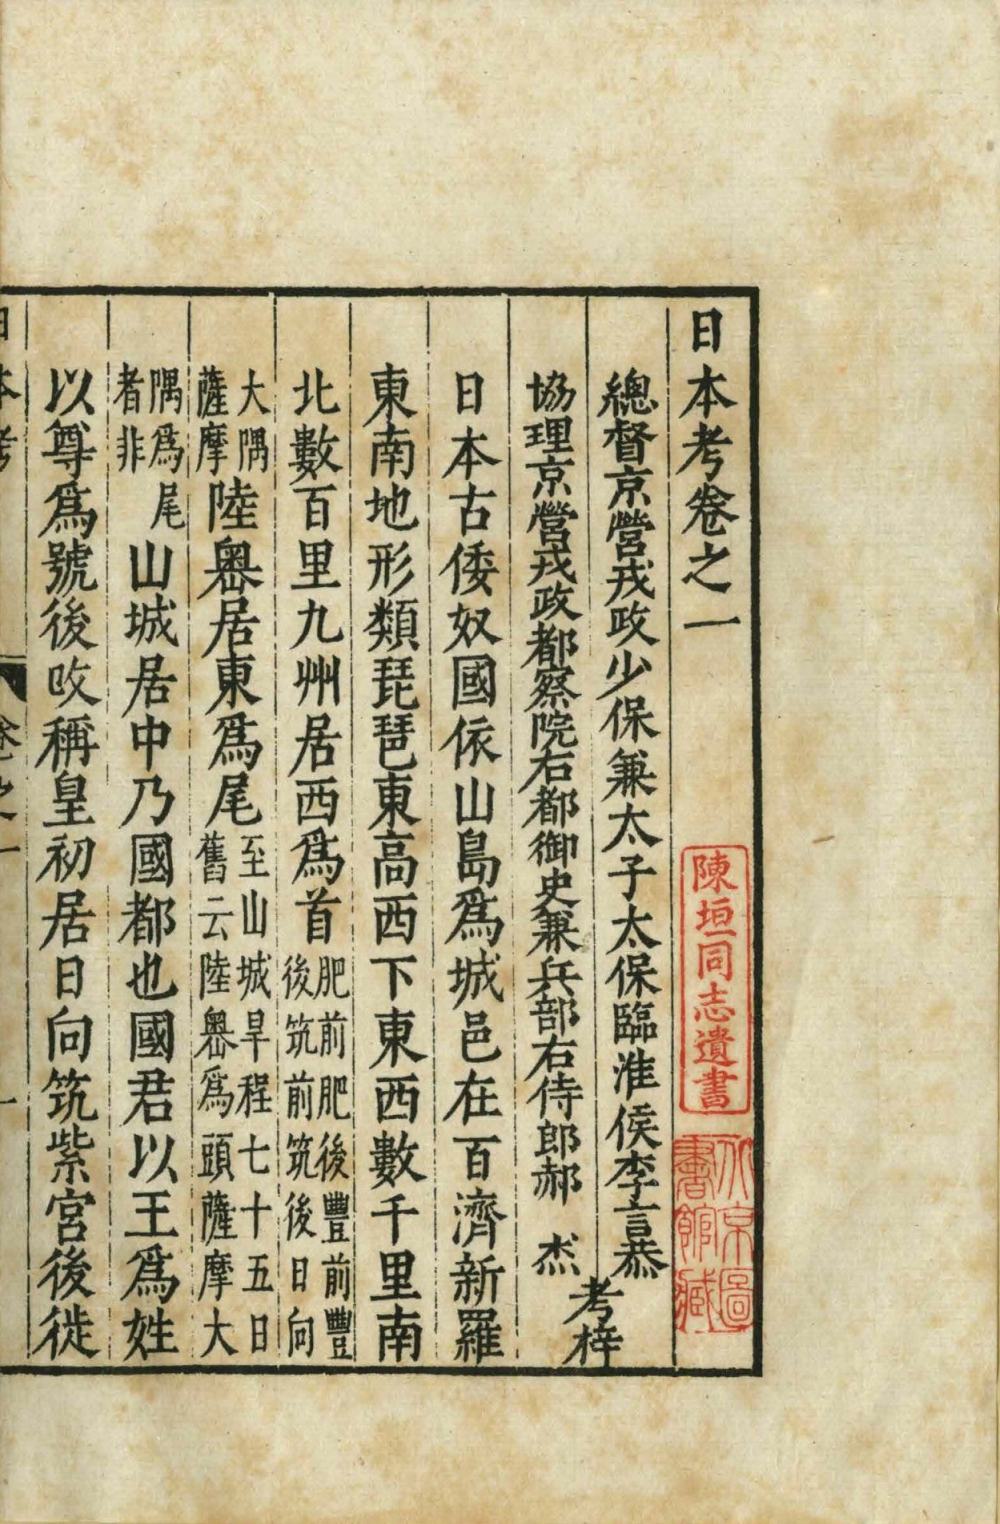 日本考卷之一
總督京營戎政少保兼太子太保臨淮侯李言恭
協理京營戎政都察院右都御史兼兵部右侍郎郝 杰
考梓
日本古倭奴國依山島爲城邑在百濟新羅
東南地形類琵琶東高西下東西數千里南
北數百里九州居西爲首肥前肥後豐前豐後筑前筑後日向
大隅薩摩陸奧居東爲尾至山城旱程七十五日舊云陸奧爲頭薩摩大
隅爲尾者非山城居中乃國都也國君以王爲姓
以尊爲號後改稱皇初居日向筑紫宮後徙
日本考
卷之一
一
陳垣同志遺書
北京圖書館藏